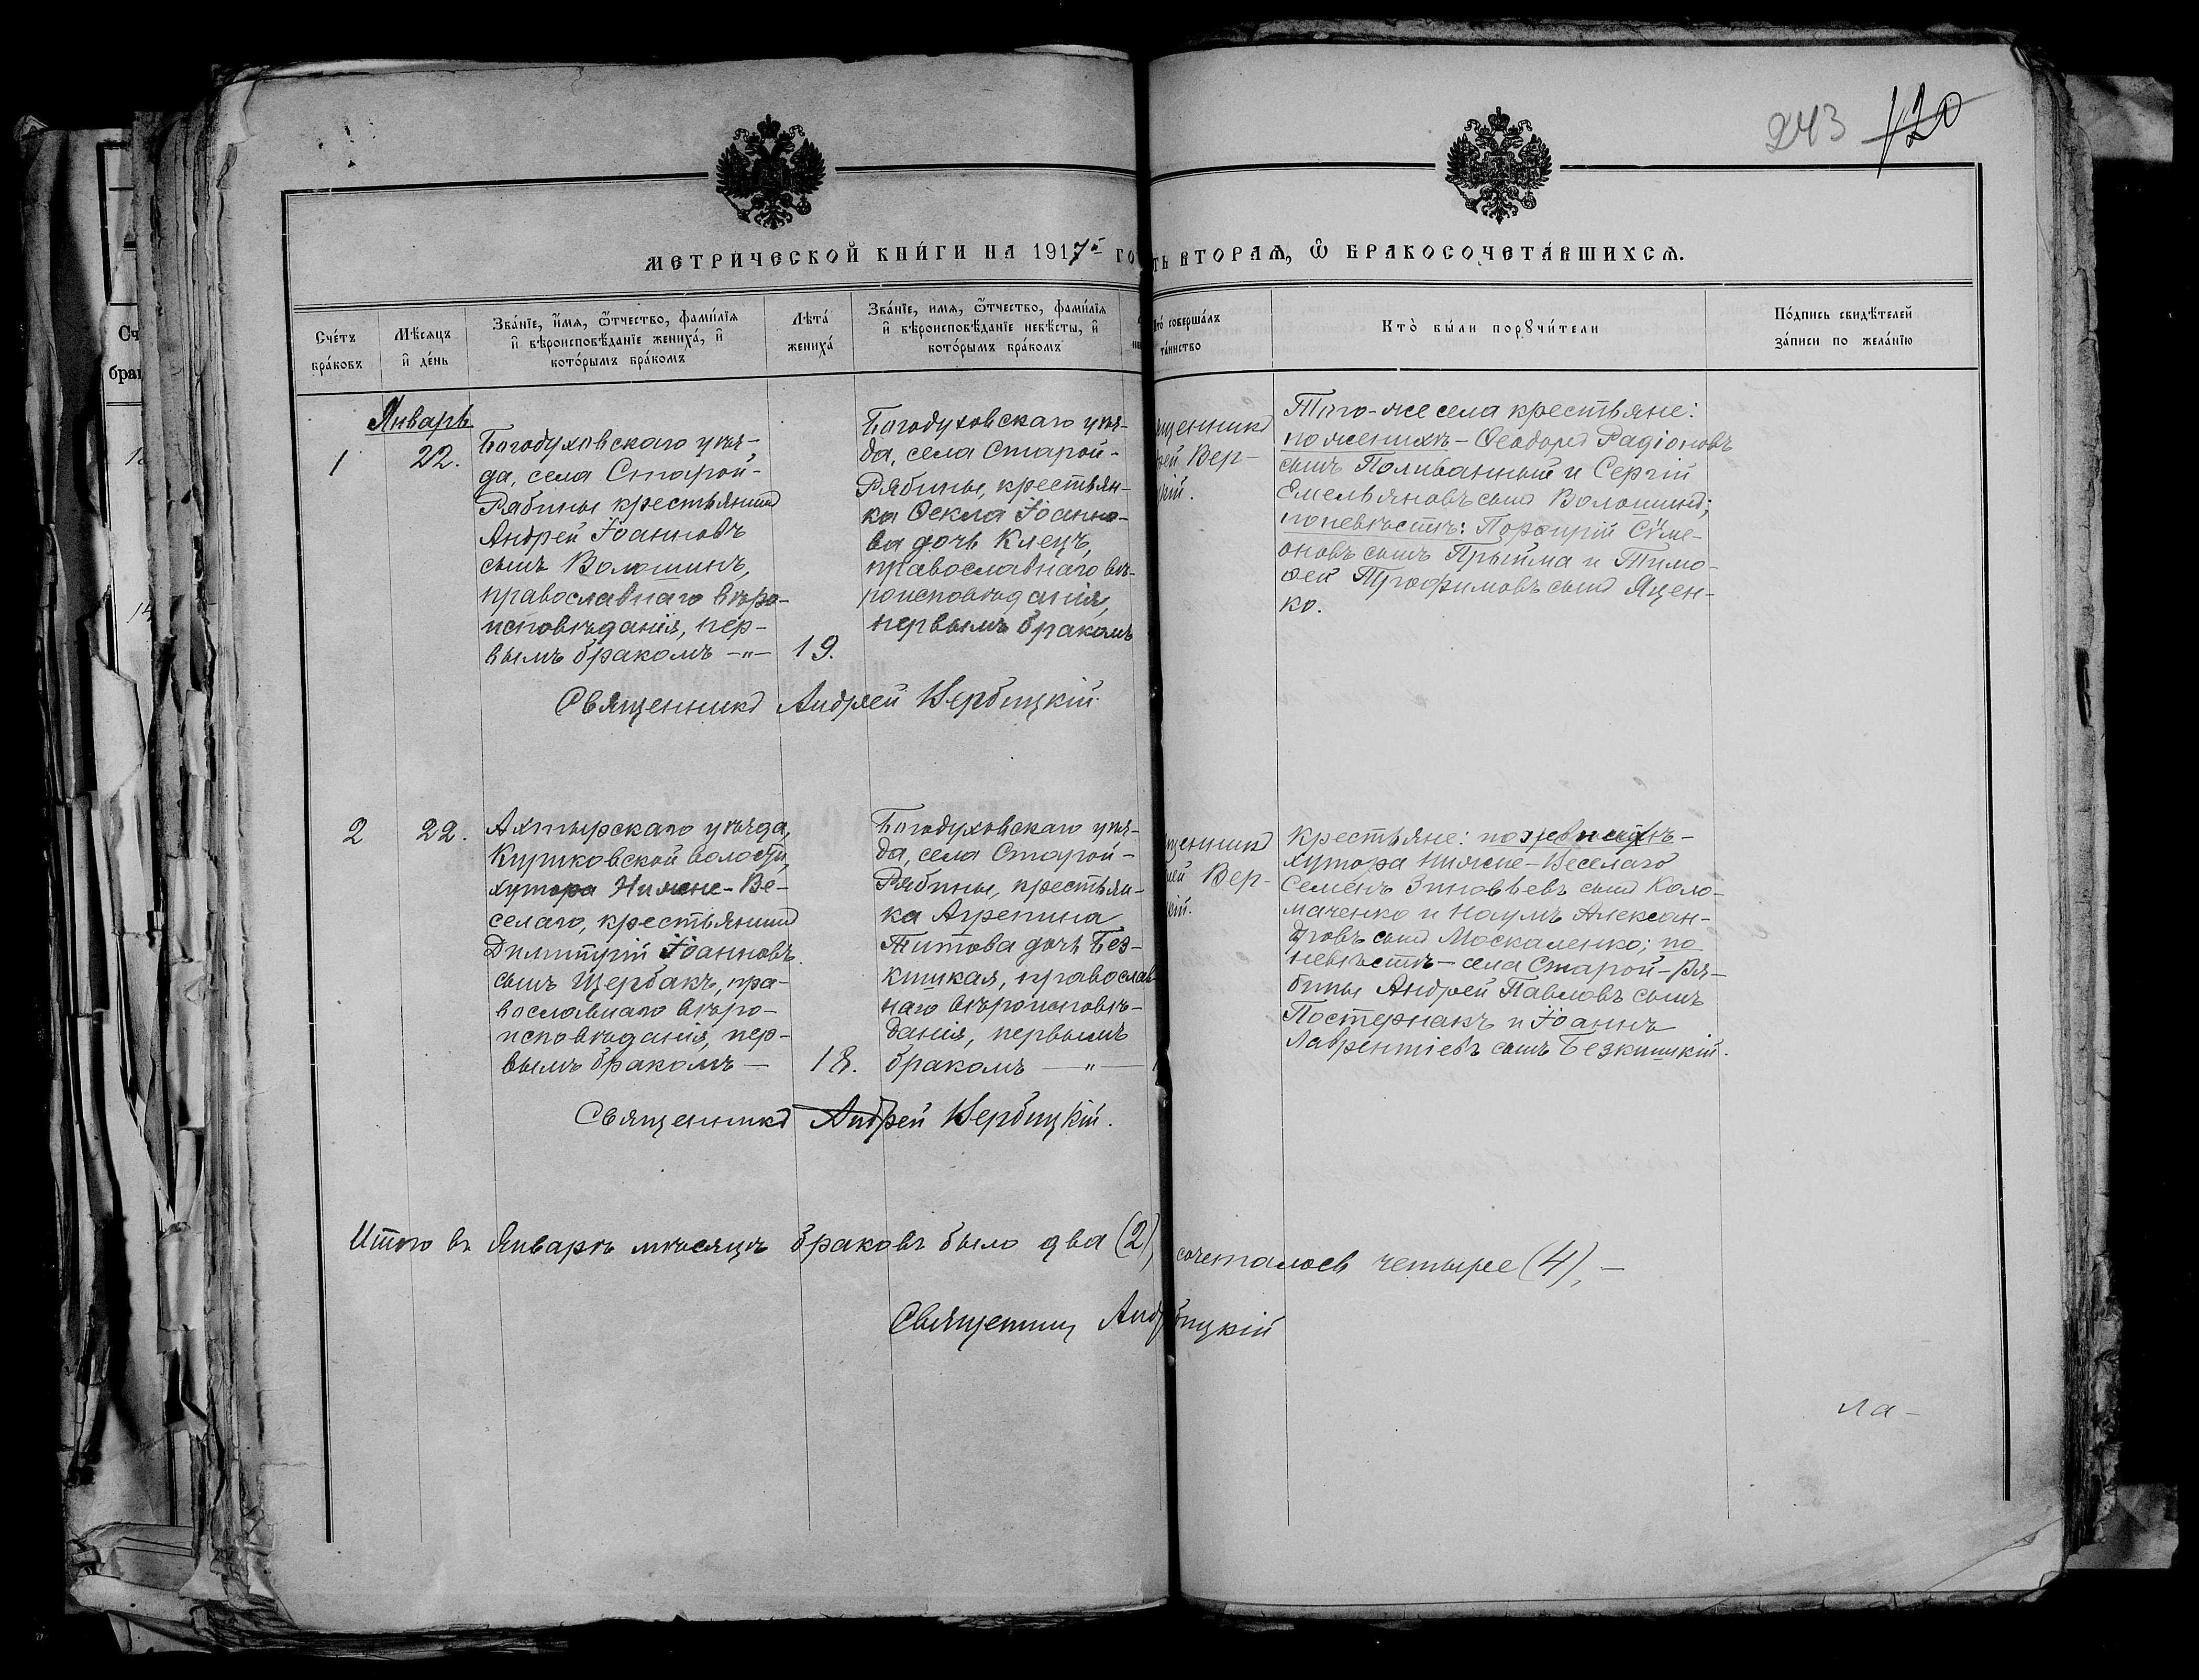 243 120
МЕТРИЧЕСКОЙ КНИ́ГИ НА 1917й ГО
ТЬ ВТОРАѦ, Ѽ БРАКОСОЧЕТА́ВШИХСѦ.
Сче́тъ
бра́ковъ
Мѣ́сяцъ
и҆ де́нь
Зва́нїе, и҆́мѧ, ѻ҆́тчество, фами́лїѧ
и҆ вѣроисповѣ́данїе жениха̀, и҆
кото́рымъ бра́комъ
Лѣта̀
жениха̀
Зва́нїе, и҆мѧ, ѻ҆́тчество, фами́лїѧ
и҆ вѣроисповѣ́данїе невѣ́сты, и҆
кото́рымъ бра́комъ
то̀ соверша́лъ
та́инство
Кто̀ бы́ли порꙋчи́тели
По́дпись свидѣ́телей
за́писи по жела́нїю
Январь
1
22.
Богодуховскаго уѣз-
да, села Старой-
Рябины крестьянинъ
Андрей Іоанновъ
сынъ Волошинъ,
православнаго вѣро-
исповѣданія, пер-
вымъ бракомъ -„-
19.
Богодуховскаго уѣз-
да, села Старой-
Рябины, крестьян-
ка Ѳекла Іоанно-
ва дочь Клецъ,
православнаго вѣ-
роисповѣданія,
первымъ бракомъ
ященникъ
рей Вер-
цкій.
Того-же села крестьяне:
по женихѣ - Ѳеодоръ Радіоновъ
сынъ Поливанный и Сергій
Емельяновъ сынъ Волошинъ;
по невѣстѣ: Порфирій Сѵме-
оновъ сынъ Прыйма и Тимо-
ѳей Трофимовъ сынъ Яцен-
ко.
Священникъ Андрей Вербицкій
2
22.
Ахтырскаго уѣзда,
волости,
хутора Нижне-Ве-
селаго, крестьянинъ
Димитрій Іоанновъ
сынъ Щербакъ, пра-
вославнаго вѣро-
исповѣданія, пер-
вымъ бракомъ —
18.
Богодуховскаго уѣз-
да, села Старой-
Рябины, крестьян-
ка Агрепина
Титова дочь Без-
кишкая, православ
наго вѣроисповѣ-
данія, первымъ
бракомъ — „ —
щенникъ
ей Вер-
кій.
Крестьяне: по
хутора Нижне-Веселаго
Семёнъ Зиновьевъ сынъ Коло-
маченко и Наумъ Алексан-
дровъ сынъ Москаленко; по
невѣстѣ - села Старой-Ря-
бины Андрей Павловъ сынъ
Постернакъ и Іоаннъ
Лаврентіевъ сынъ Безкишкій.
Священникъ Андрей Вербицкій.
Итого въ Январѣ мѣсяцѣ браковъ было два (2), сочеталось четыре (4), —
Священник Анд бицкій
Ла-